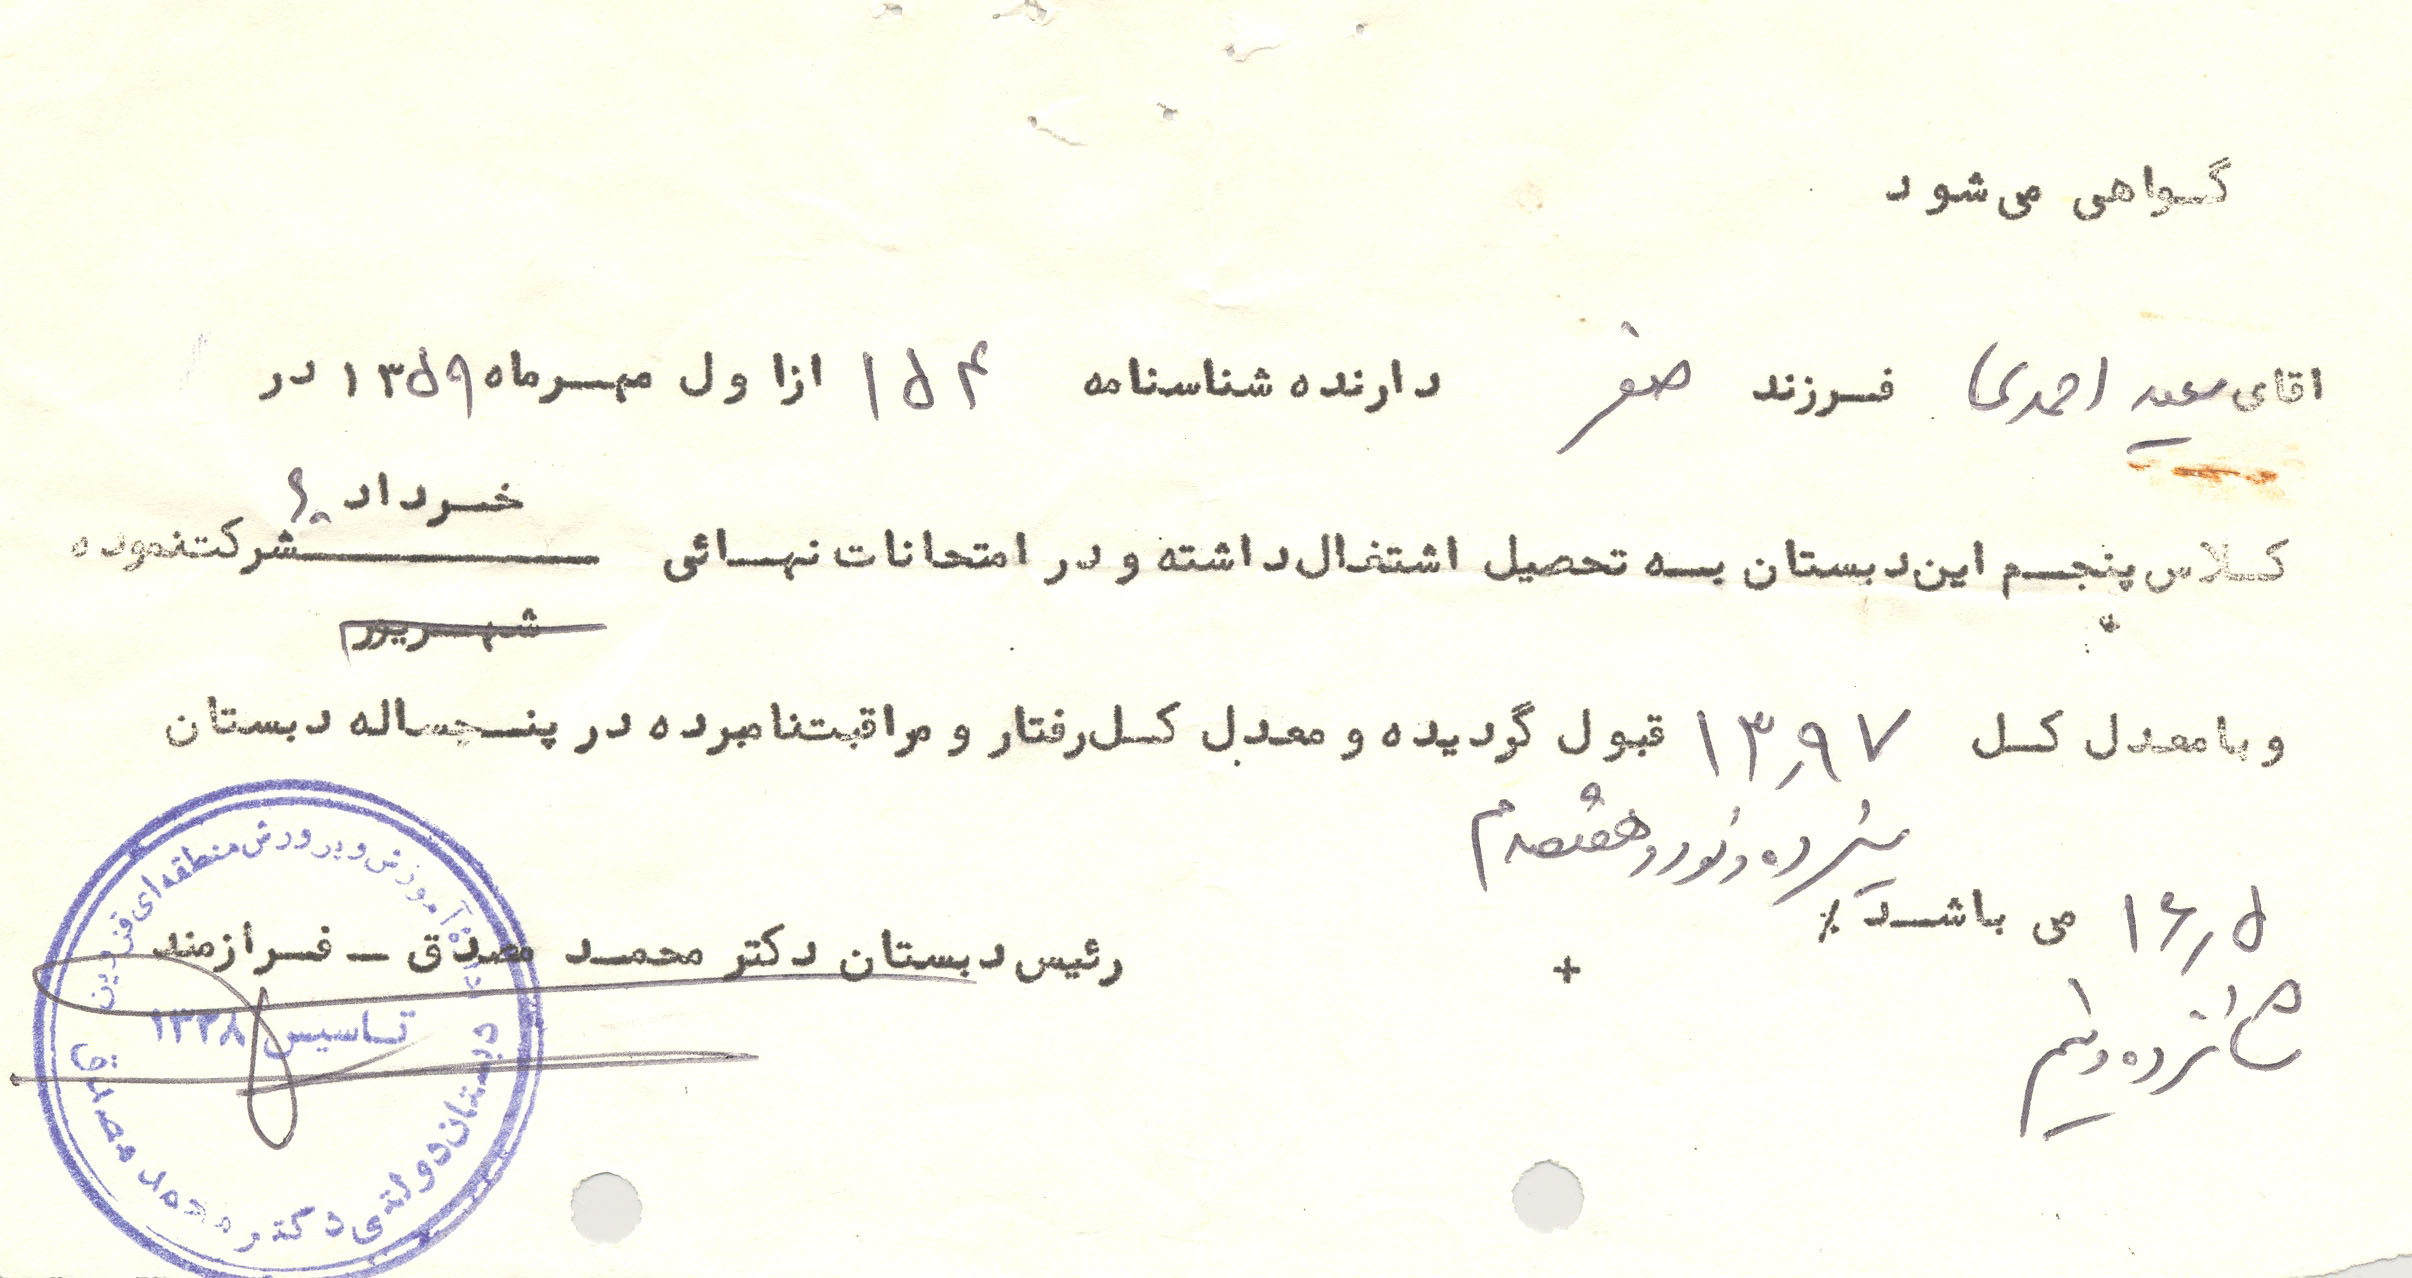 گواهی می شود
اقای سعید احمدی فرزند صفر دارنده شناسنامه ۱۵۴ ازاول مهرماه ۱۳۵۹ در
خرداد ۶۰
کلاس پنجم این دبستان به تحصیل اشتغال داشته و در امتحانات نهائی شرکت نموده
شهریور
و با معدل کل ۱۳٫۹۷ قبول گردیده و معدل کل رفتار و مراقبت نامبرده در پنجساله دبستان
سیزده و نود و هفتصدم
۱۶٫۵ می باشد ٪
شانزده و نیم
رئیس دبستان دکتر محمد مصدق - فرازمند
+
آموزش و پرورش منطقه ای قزوین
تاسیس ۱۳۳۸
دبستان دولتی دکتر محمد مصدق